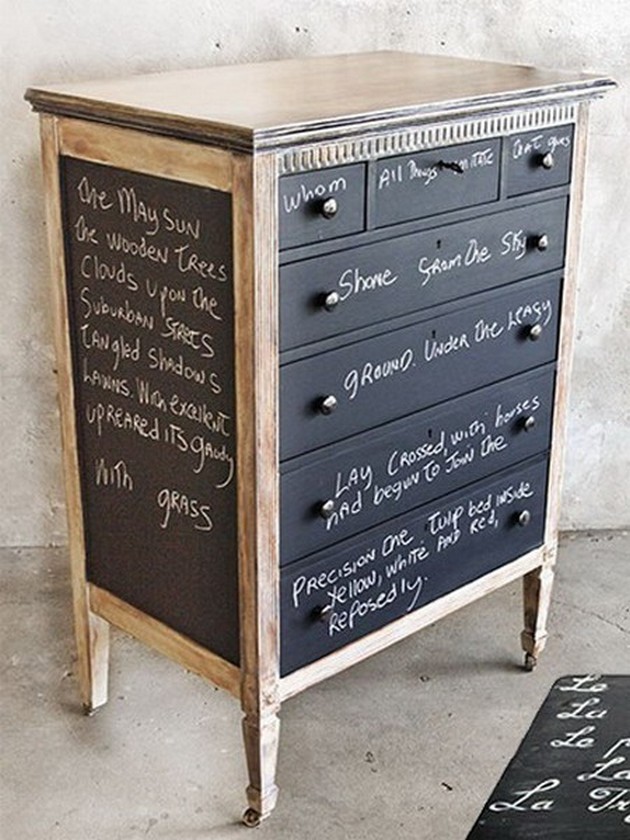 The May Sun
The wooden Trees
Clouds Upon The
Suburban Streets
Tangled Shadows
Lawns. With excellent
upreared its gaudy
With grass
Whom
All Things imitate
that gives
Shone from The Sky
GROUND. Under The Leafy
LAY Crossed, with houses
had begun To Join The
PRECISION The Tulip bed inside
Yellow, White AND Red,
Reposedly.
Le
La
Le
La
La